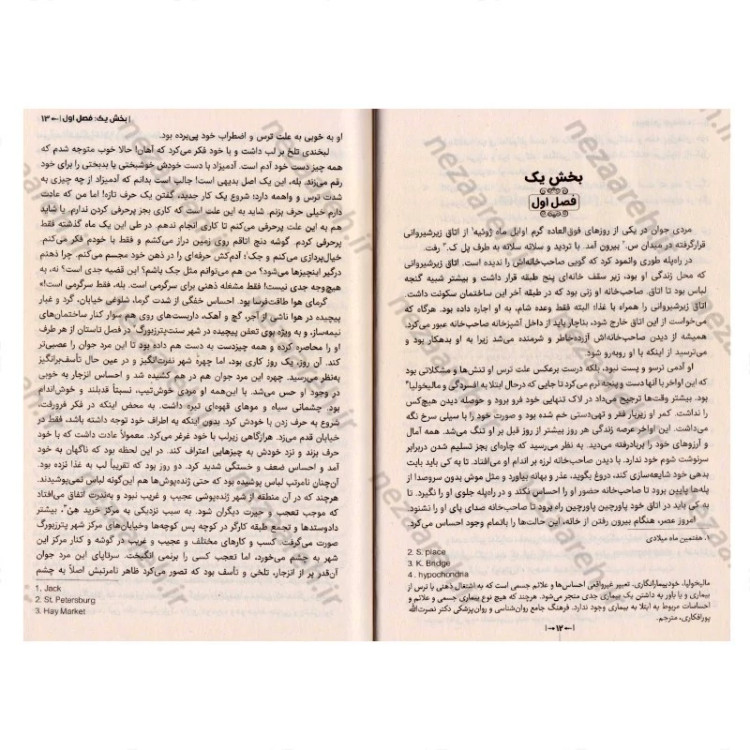 بخش یک
فصل اول
مردی جوان در یکی از روزهای فوق‌العاده گرم اوایل ماه ژوئیه¹ از اتاق زیرشیروانی
قرارگرفته در میدان س.² بیرون آمد. با تردید و سلانه سلانه به طرف پل ک.³ رفت.
در راه‌پله طوری وانمود کرد که گویی صاحب‌خانه‌اش را ندیده است. اتاق زیرشیروانی
که محل زندگی او بود، زیر سقف خانه‌ای پنج طبقه قرار داشت و بیشتر شبیه گنجه
لباس بود تا اتاق. صاحب‌خانه او زنی بود که در طبقه آخر این ساختمان سکونت داشت.
اتاق زیرشیروانی را همراه با غذا؛ البته فقط وعده شام، به او اجاره داده بود. هرگاه که
می‌خواست از این اتاق خارج شود، بناچار باید از داخل آشپزخانه صاحب‌خانه عبور می‌کرد.
همیشه از دیدن صاحب‌خانه‌اش آزرده‌خاطر و شرمنده می‌شد زیرا به او بدهکار بود و
می‌ترسید از اینکه با او روبه‌رو شود
او آدمی ترسو و پست نبود، بلکه درست برعکس علت ترس او تنش‌ها و مشکلاتی بود
که این اواخر با آنها دست و پنجه نرم می‌کرد تا جایی که درحال ابتلا به افسردگی و مالیخولیا⁴
بود. بیشتر وقت‌ها ترجیح می‌داد در لاک تنهایی خود فرو برود و حوصله دیدن هیچ‌کس
را نداشت. کمر او زیربار فقر و تهی‌دستی خم شده بود و صورت خود را با سیلی سرخ نگه
می‌داشت. این اواخر عرصه زندگی هر روز بیشتر از روز قبل بر او تنگ می‌شد. همه آمال
و آرزوهای خود را بربادرفته می‌دید. به نظر می‌رسید که چاره‌ای بجز تسلیم شدن دربرابر
سرنوشت شوم خود ندارد. با دیدن صاحب‌خانه لرزه بر اندام او می‌افتاد. تا به کی باید بابت
بدهی خود شایعه‌سازی کند، دروغ بگوید، عذر و بهانه بیاورد و مثل موش بدون سروصدا از
پله‌ها پایین برود تا صاحب‌خانه حضور او را احساس نکند و در راه‌پله جلوی او را نگیرد. تا
به کی باید در اتاق خود پاورچین پاورچین راه برود تا صاحب‌خانه صدای پای او را نشنود.
امروز عصر، هنگام بیرون رفتن از خانه، این حالت‌ها را باتمام وجود احساس می‌کرد.
۱. هفتمین ماه میلادی
2. S. place
3. K. Bridge
4. hypochondria
مالیخولیا، خودبیمارانگاری. تعبیر غیرواقعی احساس‌ها و علائم جسمی است که به اشتغال ذهنی با ترس از
بیماری و یا باور به داشتن یک بیماری جدی منجر می‌شود. هرچند که هیچ نوع بیماری جسمی و علائم و
احساسات مربوط به ابتلا به بیماری وجود ندارد. فرهنگ جامع روان‌شناسی و روان‌پزشکی دکتر نصرت‌الله
پورافکاری، مترجم.
۱۲
بخش یک: فصل اول ۱۳
او به خوبی به علت ترس و اضطراب خود پی‌برده بود.
لبخندی تلخ بر لب داشت و با خود فکر می‌کرد که آهان! حالا خوب متوجه شدم که
همه چیز دست خود آدم است. آدمیزاد با دست خودش خوشبختی یا بدبختی را برای خود
رقم می‌زند. بله، این یک اصل بدیهی است! جالب است بدانم که آدمیزاد از چه چیزی به
شدت ترس و واهمه دارد؛ شروع یک کار جدید، گفتن یک حرف تازه! اما من که عادت
دارم خیلی حرف بزنم. شاید به این علت است که کاری بجز پرحرفی کردن ندارم. یا شاید
هم به این علت پرحرفی می‌کنم تا کاری انجام ندهم. در طی این یک ماه گذشته فقط
پرحرفی کردم. گوشه دنج اتاقم روی زمین دراز می‌کشم و فقط با خودم فکر می‌کنم.
خیال‌پردازی می‌کنم و جک¹؛ آدم‌کش حرفه‌ای را در ذهن خود مجسم می‌کنم. چرا ذهنم
درگیر اینچیزها می‌شود؟ من هم می‌توانم مثل جک باشم؟ این قضیه جدی است؟ نه، به
هیچ‌وجه جدی نیست! فقط مشغله ذهنی برای سرگرمی است. بله، فقط سرگرمی است!»
گرمای هوا طاقت‌فرسا بود. احساس خفگی از شدت گرما، شلوغی خیابان، گرد و غبار
پیچیده در هوا ناشی از آجر، گچ و آهک، داربست‌های روی هم سوار کنار ساختمان‌های
نیمه‌ساز، و به ویژه بوی تعفن پیچیده در شهر سنت‌پترزبورگ² در فصل تابستان از هر طرف
او را محاصره کرده و همه چیزدست به دست هم داده بود تا این مرد جوان را عصبی‌تر
کند. آن روز، یک روز کاری بود، اما چهره شهر نفرت‌انگیز و در عین حال تأسف‌برانگیز
به‌نظر می‌رسید. چهره این مرد جوان هم در هم کشیده شد و احساس انزجار به خوبی
در وجود او حس می‌شد. با این‌همه او مردی خوش‌تیپ، نسبتاً قدبلند و خوش‌اندام
بود. چشمانی سیاه و موهای قهوه‌ای تیره داشت. به محض اینکه در فکر فرورفت،
شروع به حرف زدن با خودش کرد. بدون اینکه به اطراف خود توجه داشته باشد، فقط در
خیابان قدم می‌زد. هرازگاهی زیرلب با خود غرغر می‌کرد. معمولاً عادت داشت که با خود
حرف بزند و نزد خودش به چیزهایی اعتراف کند. در این لحظه بود که ناگهان به خود
آمد و احساس ضعف و خستگی شدید کرد. دو روز بود که تقریباً لب به غذا نزده بود.
آن‌چنان نامرتب لباس پوشیده بود که حتی ژنده‌پوش‌ها هم این‌گونه لباس نمی‌پوشیدند.
هرچند که در آن منطقه از شهر ژنده‌پوشی عجیب و غریب نبود و به‌ندرت اتفاق می‌افتاد
که موجب تعجب و حیرت دیگران شود. به سبب نزدیکی به مرکز خرید هی³، بیشتر
دادوستدها و تجمع طبقه کارگر در کوچه پس کوچه‌ها وخیابان‌های مرکز شهر پترزبورگ
صورت می‌گرفت. کسب و کارهای مختلف و عجیب و غریب در گوشه و کنار مرکز این
شهر به چشم می‌خورد، اما تعجب کسی را برنمی انگیخت. سرتاپای این مرد جوان
آن‌قدر پر از انزجار، تلخی و تأسف بود که تصور می‌کرد ظاهر نامرتبش اصلاً به چشم
1. Jack
2. St. Petersburg
3. Hay Market
nezaareh.ir